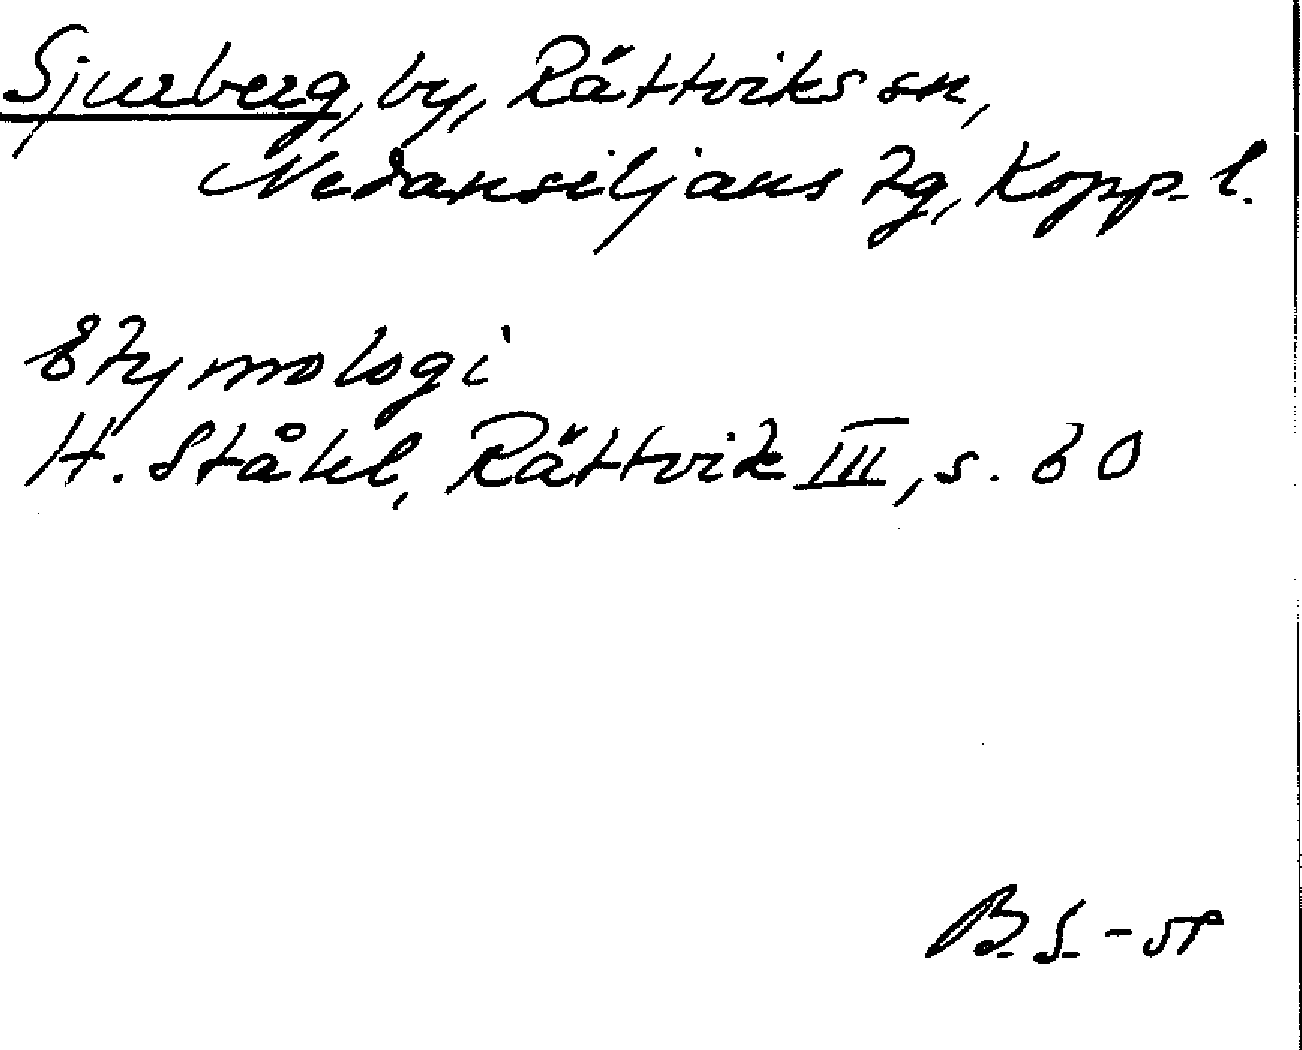 Sjurberg, by, Rättviks sn,
Nedansiljans tg, Kopp. l.
Etymologi
H. Ståhl, Rättvik III, s. 60
B. S-